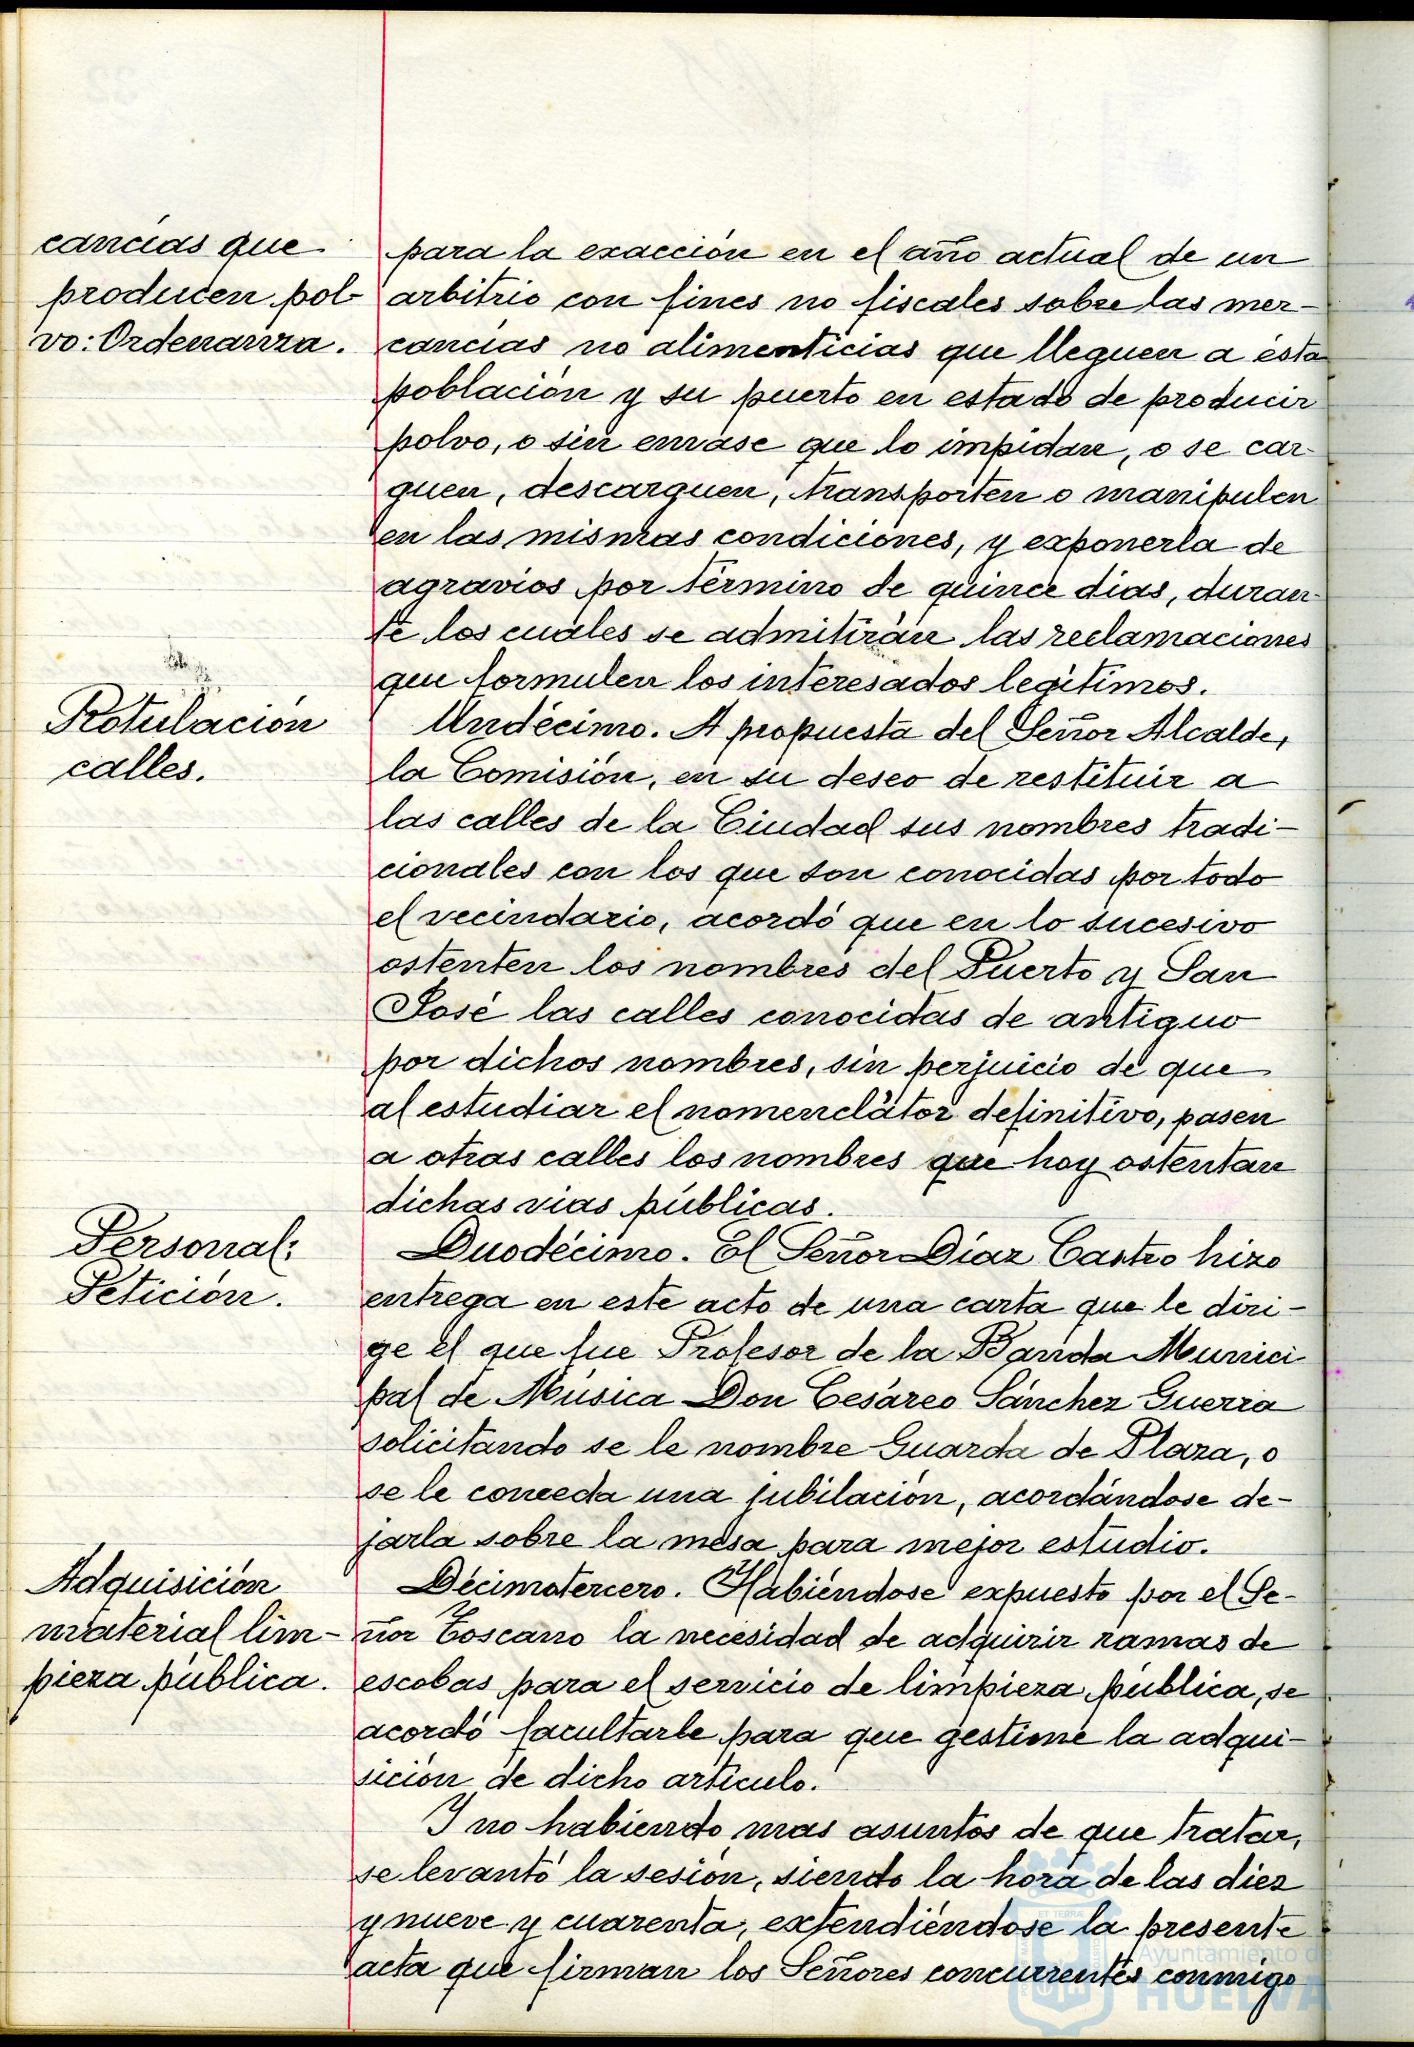 cancias que
producen pol-
vo: Ordenanza.
para la exacción en el año actual de un
arbitrio con fines no fiscales sobre las mer-
cancias no alimenticias que lleguen a ésta
población y su puerto en estado de producir
polvo, o sin envase que lo impidan, o se car-
guen, descarguen, transporten o manipulen
en las mismas condiciones, y exponerla de
agravios por término de quince dias, duran-
te los cuales se admitirán las reclamaciones
que formulen los interesados legítimos.
Rotulación
calles.
Undécimo. A propuesta del Señor Alcalde,
la Comisión, en su deseo de restituir a
las calles de la Ciudad sus nombres tradi-
cionales con los que son conocidas por todo
el vecindario, acordó que en lo sucesivo
ostenten los nombres del Puerto y San
José las calles conocidas de antiguo
por dichos nombres, sin perjuicio de que
al estudiar el nomenclátor definitivo, pasen
a otras calles los nombres que hoy ostentan
dichas vias públicas.
Personal:
Petición.
Duodécimo. El Señor Díaz Castro hizo
entrega en este acto de una carta que le diri-
ge el que fue Profesor de la Banda Munici
pal de Música Don Cesáreo Sánchez Guerra
solicitando se le nombre Guarda de Plaza, o
se le conceda una jubilación, acordándose de-
jarla sobre la mesa para mejor estudio.
Adquisición
material lim-
pieza pública.
Décimotercero. Habiéndose expuesto por el Se-
ñor Toscano la necesidad de adquirir ramas de
escobas para el servicio de limpieza pública, se
acordó facultarle para que gestione la adqui-
sición de dicho artículo.
Y no habiendo mas asuntos de que tratar,
se levantó la sesión, siendo la hora de las diez
y nueve y cuarenta, extendiéndose la presente
acta que firman los Señores concurrentes conmigo
Ayuntamiento de
HUELVA